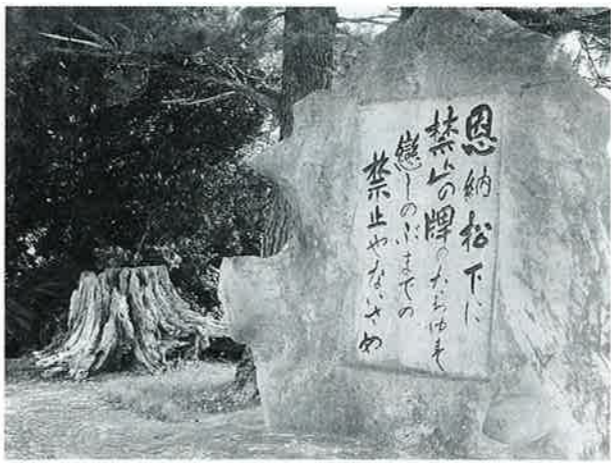 恩納松下に
禁止の牌のたちゆす
戀しのぶまでの
禁止やないさめ